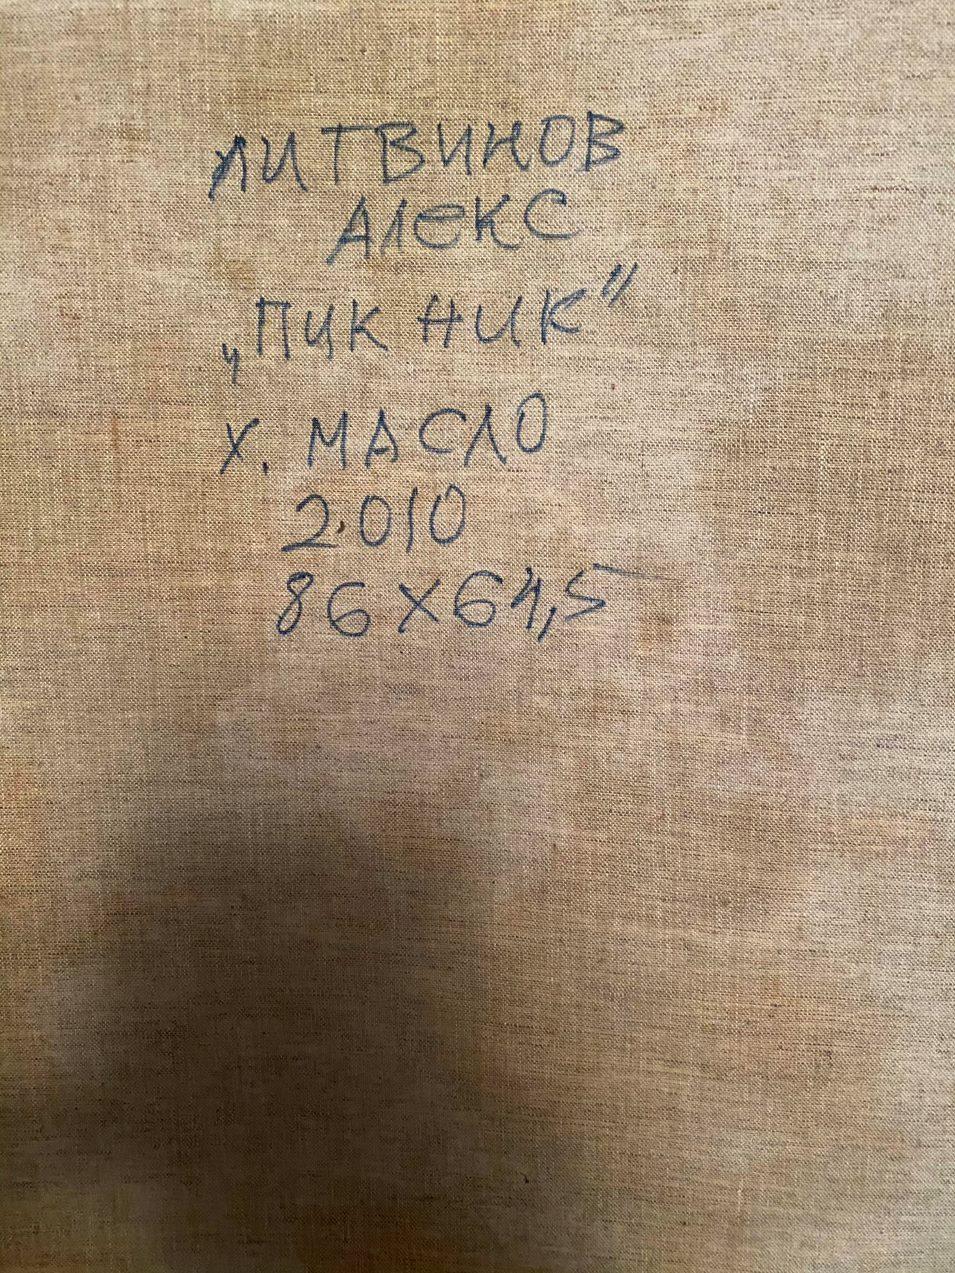 ЛИТВИНОВ
АЛЕКС
„ПИКНИК"
Х. МАСЛО
2.010
86х64,5